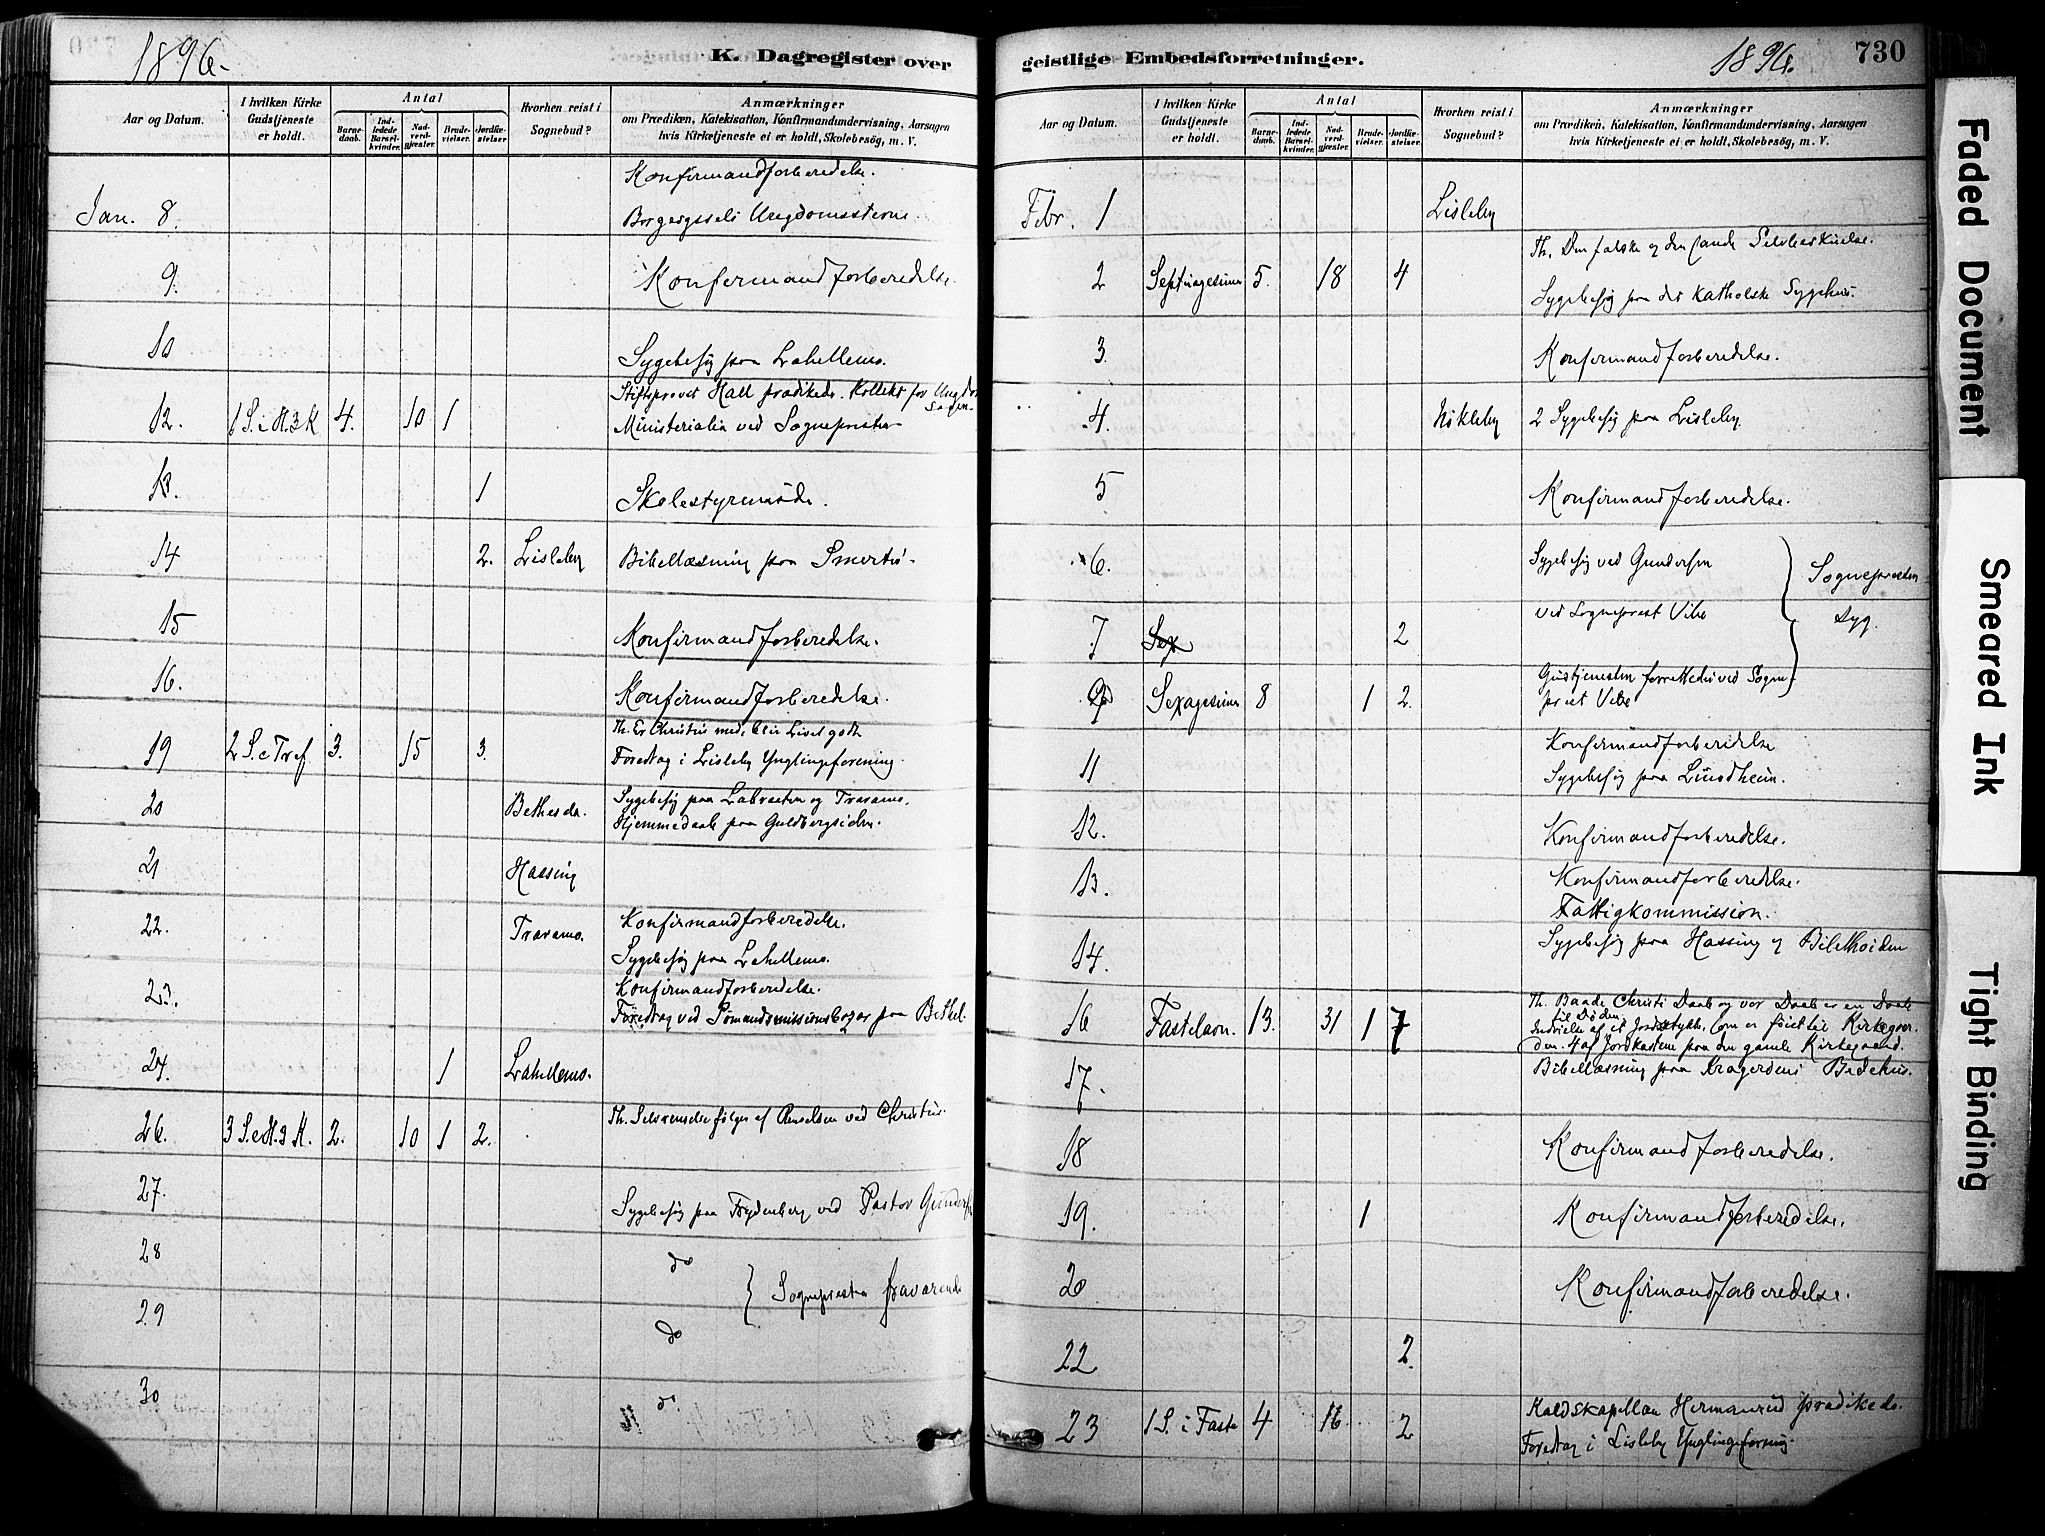 1896.
K. Dagregister over
Aar og Datum.
I hvilken Kirke Gudstjeneste er holdt.
Antal
Barnedaab.
Indledede Barselkvinder.
Nadverdgjæster.
Brudevielser.
Jordfæstelser
Hvorhen reist i Sognebud?
Anmærkninger
om Prædiken, Katekisation, Konfirmandundervisning, Aarsagen
hvis Kirketjeneste ei er holdt, Skolebesög, m. V.
Konfirmandforberedelse.
Jan. 8. Ungdoms
9. Konfirmandforberedelse.
10 Sygebesøg paa Lahellemo.
Stiftsprovst Hall prædikede. Kollekt for
12. 1 S. i H. 3 K 4. 10 1 Ministerialia ved Sognepresten
13. 1 Skolestyremøde.
14 2. Lisleby Bibellæsning paa
15 Konfirmandforberedelse.
16. Konfirmandforberedelse.
Th. Er Christus med, blir Livet godt
19 2 S. e Tref 3. 15 3. Foredrag i Lisleby Ynglingeforening.
20 Bethesda. Sygebesøg paa Labraaten og Traramo.
Hjemmedaab paa Guldbergsiden.
21 Hassing
22. Traramo. Konfirmandforberedelse.
Sygebesøg paa Lahellemo.
23. Konfirmandforberedelse.
Foredrag ved Sømandsmissionsbazar paa Bethel.
24. 1 Lahellemo.
26. 3 S. e H. 3 K. 2. 10 1 2. Th. følger af Renselsen ved Christus.
27. Sygebesøg paa Frydenberg ved Pastor
28 do
Sognepresten fraværende
29 do
30 do
geistlige Embedsforretninger.
1896.
730
Aar og Datum.
I hvilken Kirke Gudstjeneste er holdt.
Antal
Barnedaab.
Indledede Barselkvinder.
Nadverdgjæster.
Brudevielser.
Jordfæstelser.
Hvorhen reist i Sognebud?
Anmærkninger
om Prædiken, Katekisation, Konfirmandundervisning, Aarsagen
hvis Kirketjeneste ei er holdt, Skolebesög, m. V.
Febr. 1 Lisleby
Th. Den falske og den sande
2 Septuagesima 5. 18 4 Sygebesøg paa det katholske Sygehus.
3. Konfirmandforberedelse.
4. Nökleby 2 Sygebesøg paa Lisleby
5 Konfirmandforberedelse.
6. Sygebesøg ved Gundersen
Sognepresten
7 Sex 2 ved Sogneprest Vibe
syg.
9 Sexagesima 8 1 2. Gustjenesten forrettedes ved Sogneprest Vibe
11 Konfirmandforberedelse
Sygebesøg paa Lundheim.
12. Konfirmandforberedelse.
13. Konfirmandforberedelse.
Fattigkommission.
14. Sygebesøg paa Hassing og
Th. Baade Christi Daab og vor Daab er en Daab
til Døden.
16 Fastelavn. 13. 31 1 7 Indvielse af et Jordstykke, som er føiet til Kirkegaarden. 4 af Jordkastene paa den gamle Kirkegaard.
17. Bibellæsning paa Kragerøens Bedehus.
18 Konfirmandforberedelse.
19. 1 Konfirmandforberedelse.
20 Konfirmandforberedelse.
22 2.
23 1 S. i Faste 4 16 2 Kaldskapellan Hermanrud prædikede.
Foredrag i Lisleby Ynglingeforening.
Faded Document
Smeared Ink
Tight Binding